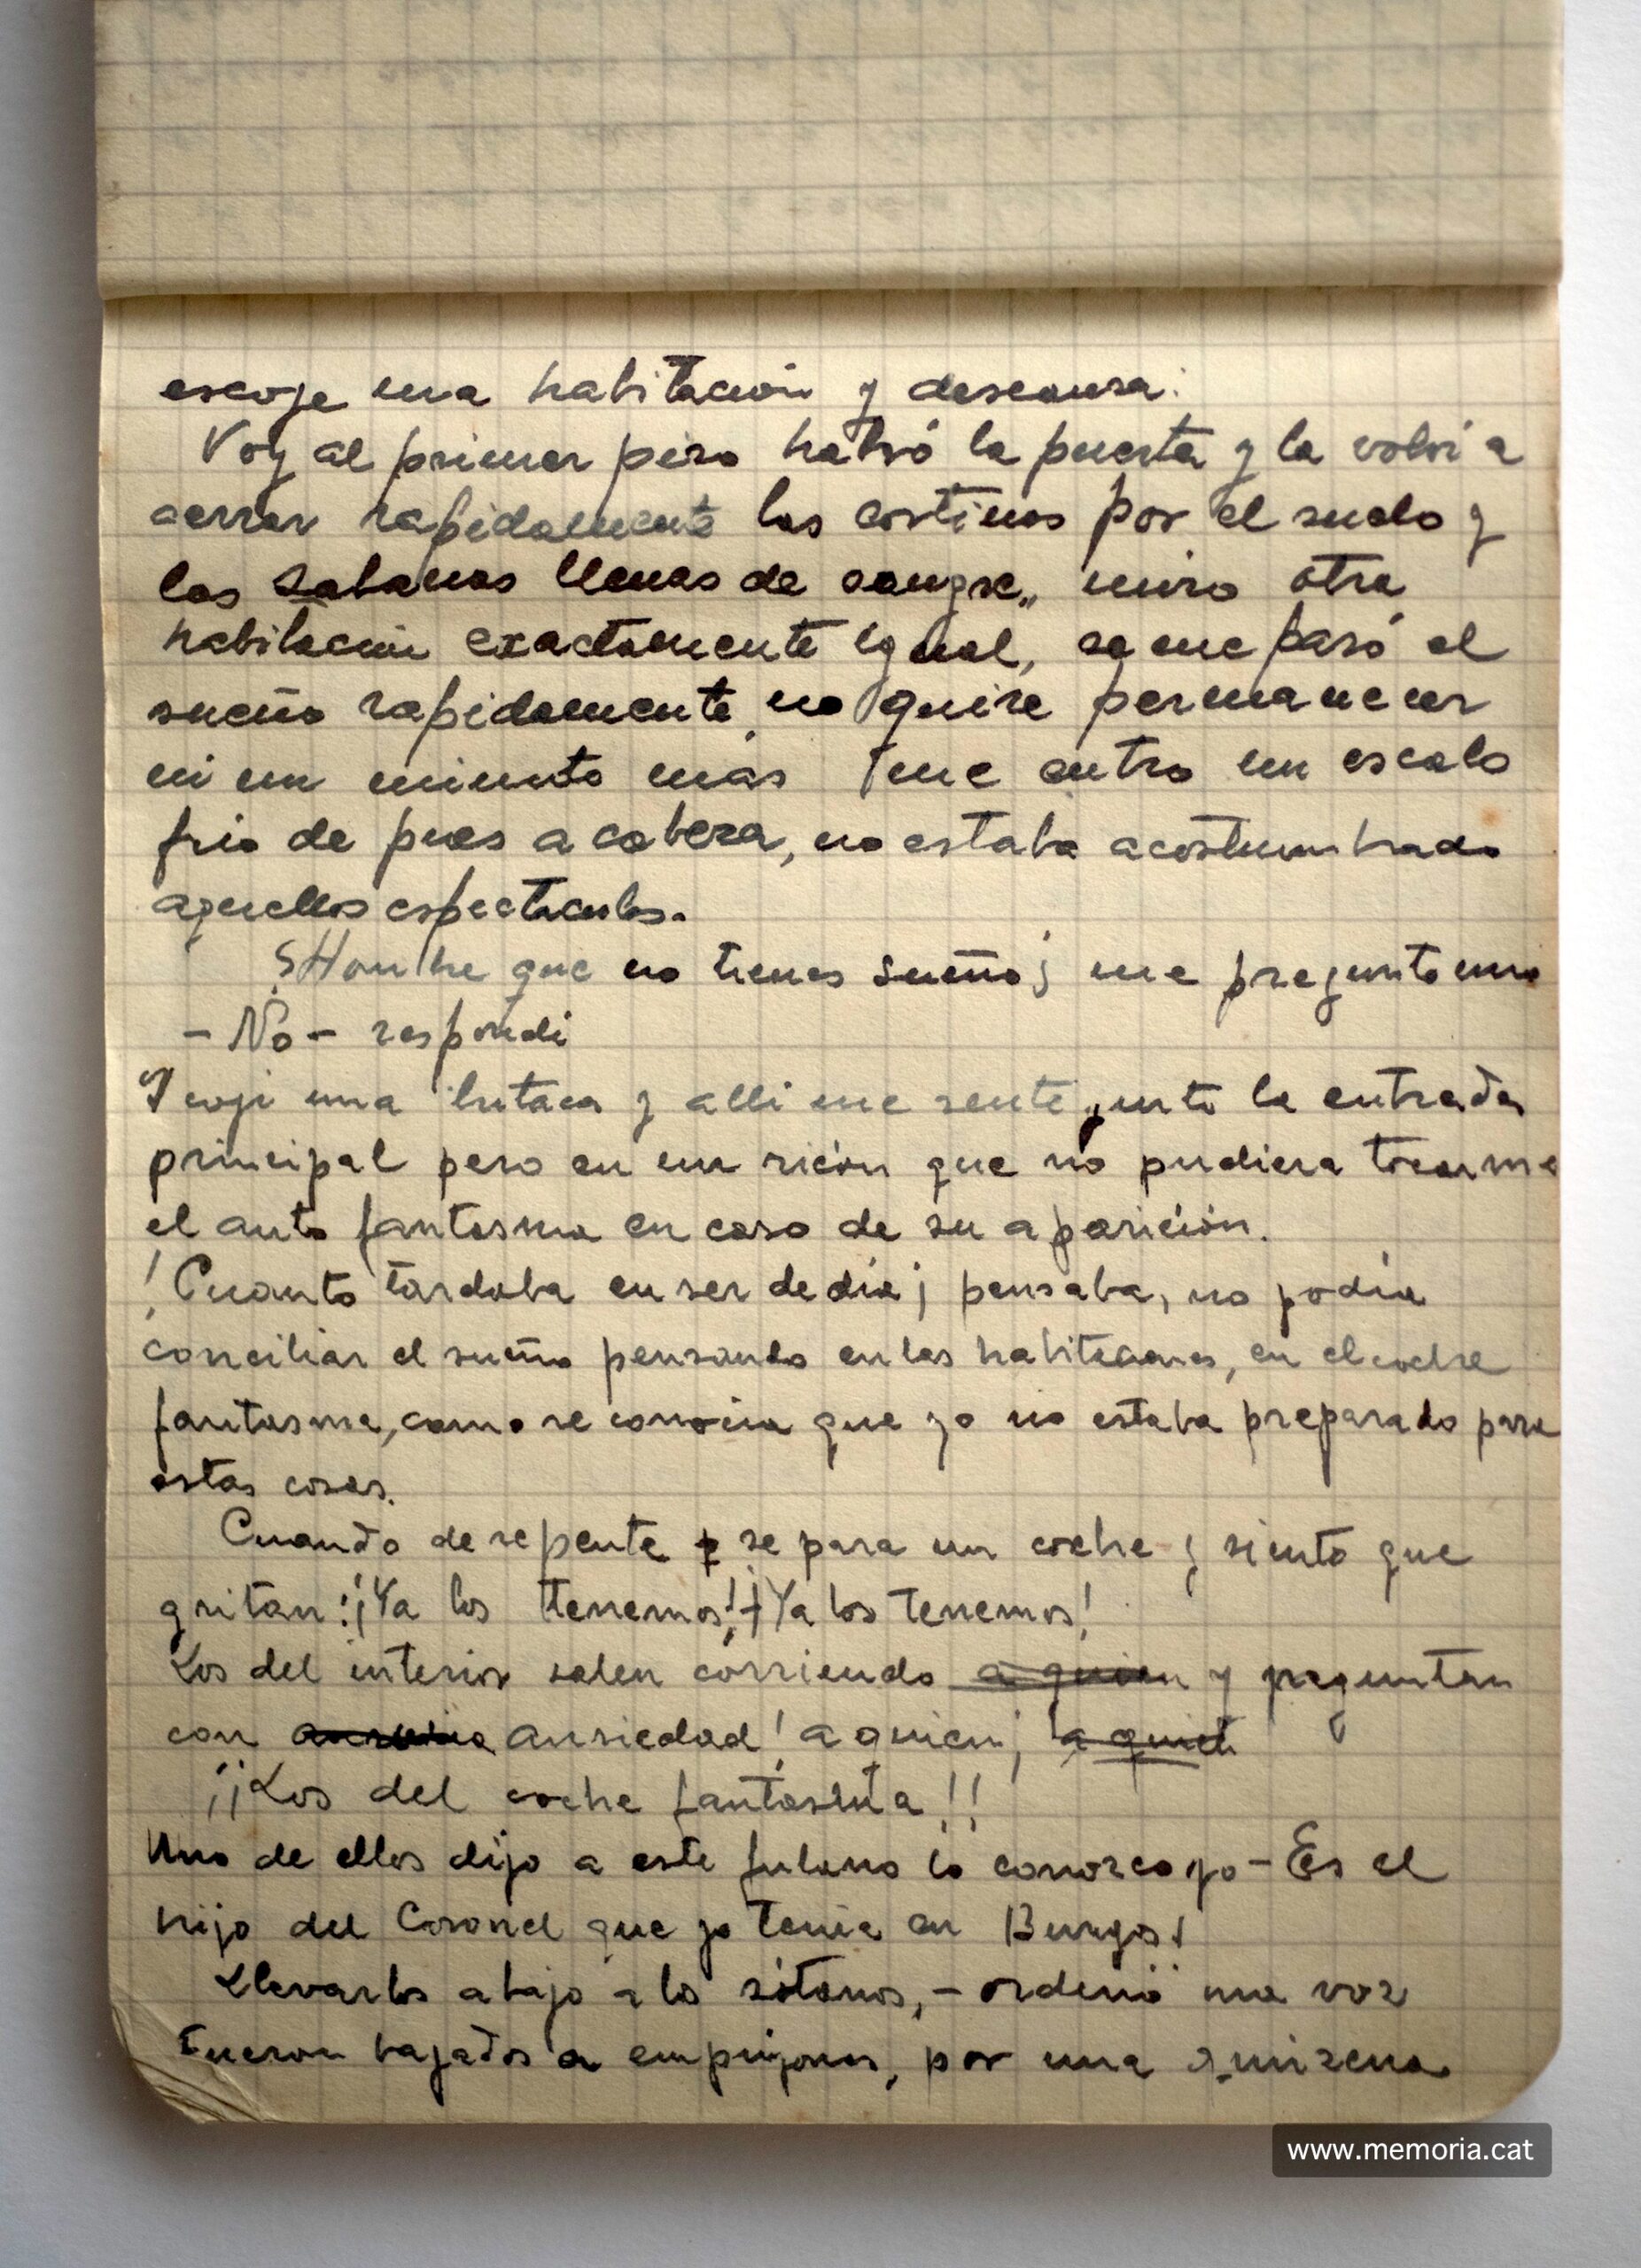 escoje una habitación y descansa.
Voy al primer piso habró la puerta y la volví a
cerrar rapidamente las cortinas por el suelo y
las sabanas llenas de sangre,, miro otra
habitación exactamente igual, se me pasó el
sueño rapidamente, no quire permanecer
ni un minuto más me entro un escalo
frio de pies a cabeza, no estaba acostumbrado
aquellos espectaculos.
¿Hombre que no tienes sueño; me pregunto uno
- No - respondi
Y coji una butaca y alli me sente junto la entrada
principal pero en un ricón que no pudiera tocarme
el auto fantasma en caso de su aparición.
¡Cuanto tardaba en ser de dia¡ pensaba, no podia
conciliar el sueño pensando en las habitaciones, en el coche
fantasma, como se conocia que yo no estaba preparado para
estas cosas.
Cuando de repente se para un coche y siento que
gritan: ¡¡Ya los tenemos!! ¡Ya los tenemos!
Los del interior salen corriendo a quien y preguntan
con ansiedad ! a quien ¡ a quien
¡¡Los del coche fantasma!!
Uno de ellos dijo a este fulano lo conozco yo - Es el
hijo del Coronel que yo tenia en Burgos!
Llevarlos abajo a los sótanos, - ordenó una voz
Fueron bajados a empujones, por una quinzena
www.memoria.cat